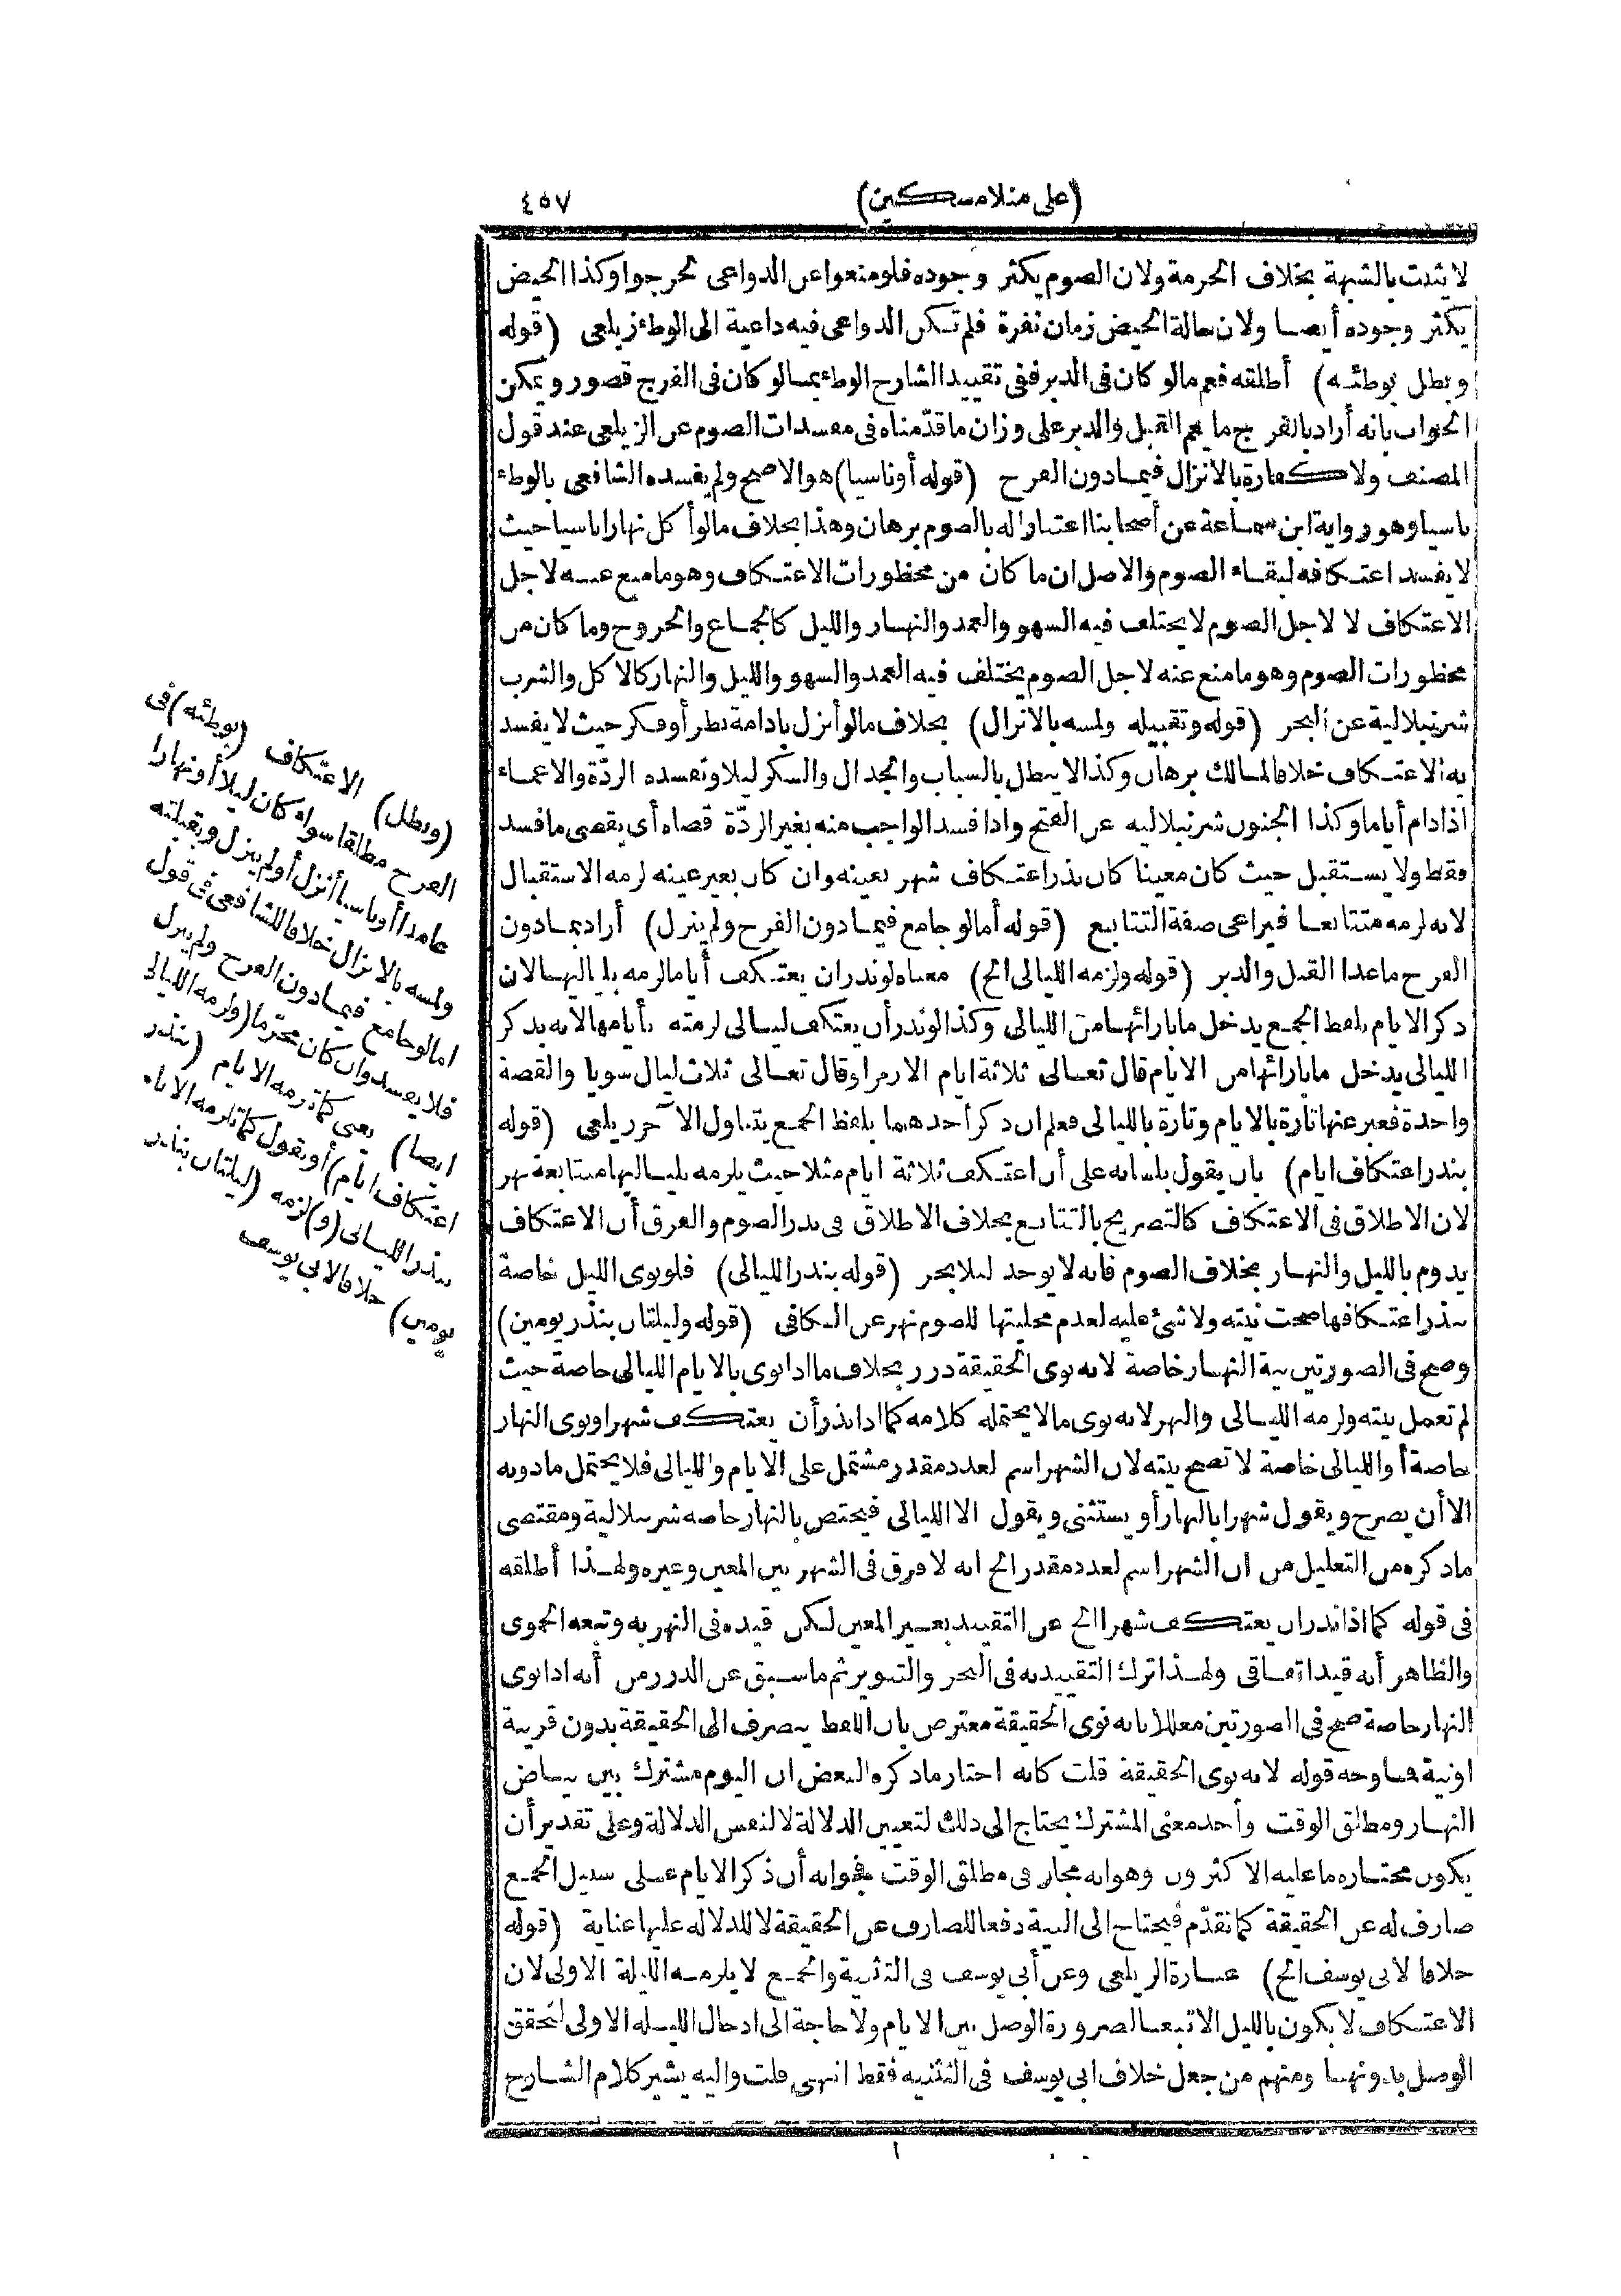 (على منلا مسكين) ٤٥٧
لا يثبت بالشبهة بخلاف الحرمة ولان الصوم يكثر وجوده فلو منعوا عن الدواعى لحرجوا وكذا الحيض
يكثر وجوده أيضا ولان حالة الحيض زمان نفرة فلم تكن الدواعى فيه داعية الى الوطئ زيلعى (قوله
وبطل بوطئه) أطلقه فعم مالو كان فى الدبر ففى تقييد الشارح الوطء بمالو كان فى الفرج قصور ويمكن
الجواب بانه أراد بالفرج ما يعم القبل والدبر على وزان ما قدّمناه فى مفسدات الصوم عن الزيلعى عند قول
المصنف ولا كفارة بالانزال فيمادون الفرج (قوله أوناسيا) هو الاصح ولم يفسده الشافعى بالوطء
ناسيا وهو رواية ابن سماعة عن أصحابنا اعتبارا له بالصوم برهان وهذا بخلاف مالوأ كل نهارا ناسيا حيث
لا يفسد اعتكافه لبقاء الصوم والاصل ان ما كان من محظورات الاعتكاف وهو مامنع عنه لاجل
الاعتكاف لا لاجل الصوم لا يختلف فيه السهو والعمد والنهار والليل كالجماع والخروج وما كان من
محظورات الصوم وهو مامنع عنه لاجل الصوم يختلف فيه العمد والسهو والليل والنهار كالا كل والشرب
شرنبلالية عن البحر (قوله وتقبيله ولمسه بالانزال) بخلاف مالو أنزل بادامة نظر أو فكر حيث لا يفسد
به الاعتكاف خلافا لمالك برهان وكذا لا يبطل بالسباب والجدال والسكر ليلا وتفسده الردّة والاغماء
اذا دام أياما وكذا الجنون شرنبلاليه عن الفتح واذا فسد الواجب منه بغير الردّة قضاه أى يقضى مافسد
فقط ولا يستقبل حيث كان معينا كان نذر اعتكاف شهر بعينه وان كان بغير عينه لزمه الاستقبال
لانه لزمه متتابعا فيراعى صفة التتابع (قوله أمالو جامع فيمادون الفرج ولم ينزل) أراد بمادون
الفرج ماعدا القبل والدبر (قوله ولزمه الليالى الخ) معناه لو نذر ان يعتكف أياما لزمه بلياليها لان
ذكر الايام بلفظ الجمع يدخل مابازائها من الليالى وكذا لو نذر أن يعتكف ليالى لزمته بأيامها لانه بذكر
الليالى يدخل مابازائها من الايام قال تعالى ثلاثة ايام الا رمزا وقال تعالى ثلاث ليال سويا والقصة
واحدة فعبر عنها تارة بالايام وتارة بالليالى فعلم ان ذكر أحدهما بلفظ الجمع يتناول الآخر زيلعى (قوله
بنذر اعتكاف ايام) بان يقول بلسانه على أن اعتكف ثلاثة ايام مثلا حيث يلزمه بلياليها متتابعة نهر
لان الاطلاق فى الاعتكاف كالتصريح بالتتابع بخلاف الاطلاق فى نذر الصوم والفرق أن الاعتكاف
يدوم بالليل والنهار بخلاف الصوم فانه لا يوجد ليلا بحر (قوله بنذر الليالى) فلو نوى الليل خاصة
بنذر اعتكافها صحت نيته ولا شئ عليه لعدم محليتها للصوم نهر عن الكافى (قوله وليلتان بنذر يومين)
وصح فى الصورتين نية النهار خاصة لانه نوى الحقيقة درر بخلاف ما اذا نوى بالايام الليالى خاصة حيث
لم تعمل نيته ولزمه الليالى والنهر لانه نوى مالا يحتمله كلامه كما اذا نذر أن يعتكف شهرا ونوى النهار
خاصة أو الليالى خاصة لا تصح نيته لان الشهر اسم لعدد مقدر مشتمل على الايام والليالى فلا يحتمل مادونه
الا أن يصرح ويقول شهرا بالنهار أو يستثنى ويقول الا الليالى فيختص بالنهار خاصه شرنبلالية ومقتضى
ماذكره من التعليل من ان الشهر اسم لعدد مقدر الخ انه لا فرق فى الشهر بين المعين وغيره ولهذا أطلقه
فى قوله كما اذا نذر ان يعتكف شهرا الخ عن التقييد بغير المعين لكن قيده فى النهر به وتبعه الحموى
والظاهر أنه قيد اتفاقى ولهذا ترك التقييد به فى البحر والتنوير ثم ماسبق عن الدرر من أنه اذا نوى
النهار خاصة صح فى الصورتين معللا بانه نوى الحقيقة معترض بان اللفظ ينصرف الى الحقيقة بدون قرينة
اونية فما وجه قوله لانه نوى الحقيقة قلت كانه اختار ماذكره البعض ان اليوم مشترك بين بياض
النهار ومطلق الوقت وأحد معنى المشترك يحتاج الى ذلك لتعيين الدلالة لا لنفس الدلالة وعلى تقدير أن
يكون مختاره ماعليه الاكثرون وهو انه مجاز فى مطلق الوقت فجوابه أن ذكر الايام على سبيل الجمع
صارف له عن الحقيقة كما تقدّم فيحتاج الى النية دفعا للصارف عن الحقيقة لا للدلاله عليها عناية (قوله
خلافا لابى يوسف الخ) عبارة الزيلعى وعن أبى يوسف فى التثنية والجمع لا يلزمه الليلة الاولى لان
الاعتكاف لا يكون بالليل الا تبعا لضرورة الوصل بين الايام ولا حاجة الى ادخال الليله الاولى لتحقق
الوصل بدونها ومنهم من جعل خلاف ابى يوسف فى التثنيه فقط انهى قلت واليه يشير كلام الشارح
(وبطل) الاعتكاف (بوطئه) فى
الفرج مطلقا سواء كان ليلا أو نهارا
عامدا أو ناسيا أنزل أولم ينزل وبقبلته
ولمسه بالانزال خلافا للشافعى فى قول
امالو جامع فيمادون الفرج ولم ينزل
فلا يفسد وان كان محرّما (ولزمه الليالى
ايضا) يعنى كما تزمه الايام (بنذر
اعتكاف ايام) أو يقول كما تلزمه الايام
بنذر الليالى (و) لزمه (ليلتان بنذر
يومين) خلافا لابى يوسف